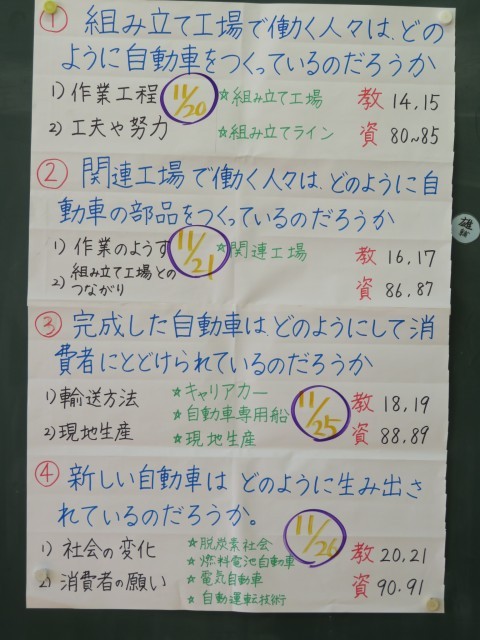 ① 組み立て工場で働く人々は、どの
ように自動車をつくっているのだろうか
1) 作業工程 11/20 ☆組み立て工場 教 14,15
2) 工夫や努力 ☆組み立てライン 資 80~85
② 関連工場で働く人々は、どのように自
動車の部品をつくっているのだろうか
1) 作業のようす 11/21 ☆関連工場 教 16,17
2) 組み立て工場との
つながり 資 86,87
③ 完成した自動車はどのようにして消
費者にとどけられているのだろうか
1) 輸送方法 ★キャリアカー 11/25 教 18,19
★自動車専用船
2) 現地生産 ★現地生産 資 88,89
④ 新しい自動車は どのように生み出さ
れているのだろうか。
1) 社会の変化 ★脱炭素社会 11/26 教 20,21
★燃料電池自動車
2) 消費者の願い ★電気自動車 資 90.91
★自動運転技術